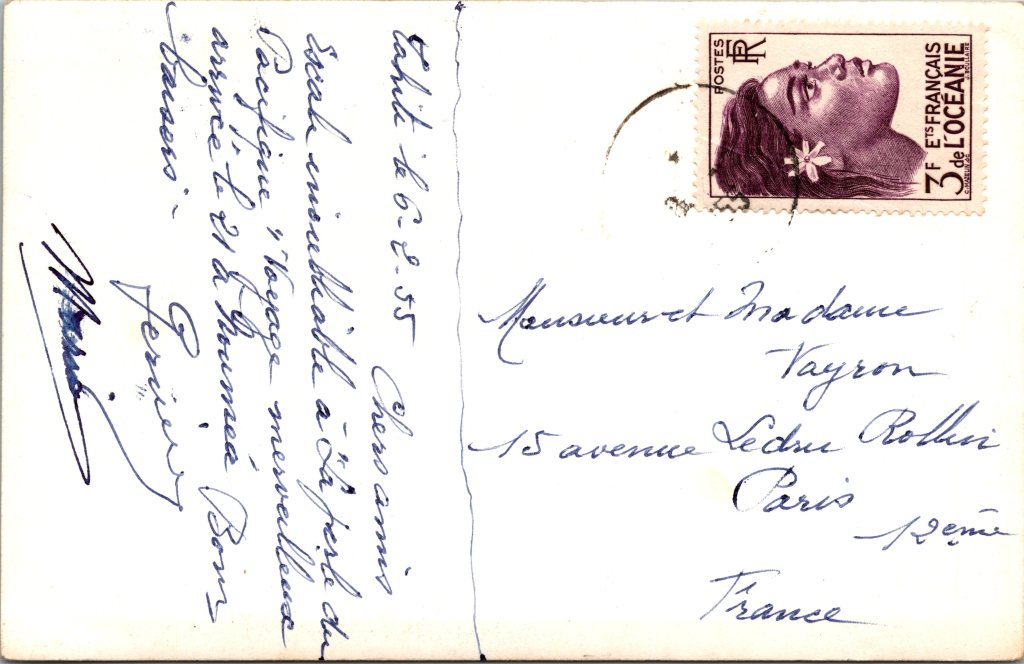 Tahiti le 6-2-55 Chers amis
Escale inoubliable à "La perle du
Pacifique". Voyage merveilleux
arrivée le 21 à Nouméa Bons
baisers.
Monsieur et Madame
Vayron
15 avenue Ledru Rollin
Paris
12ème
France
POSTES
RF
3F ETS FRANÇAIS
de L'OCÉANIE